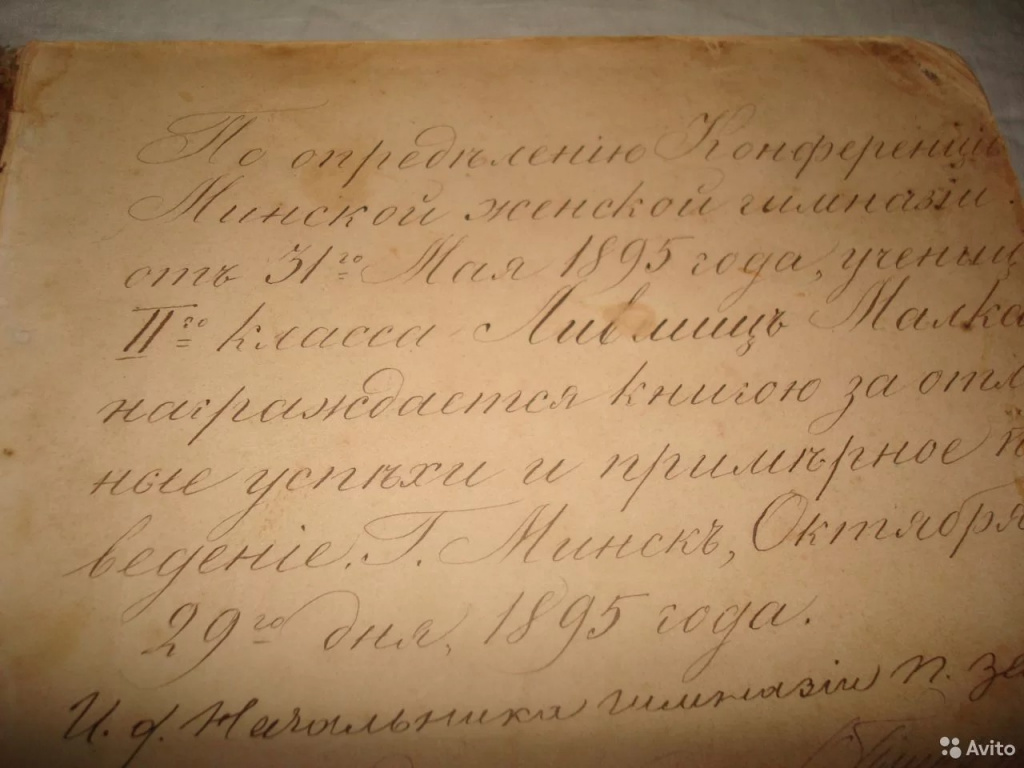 По опредѣленію Конференціи
Минской женской гимназіи
отъ 31го Мая 1895 года, учениц
IIго класса Лившицъ Малка
награждается книгою за отл
ные успѣхи и примѣрное п
веденіе. Г. Минскъ, Октября
29го дня, 1895 года.
И. ф. Начальника гимназіи П.
Avito